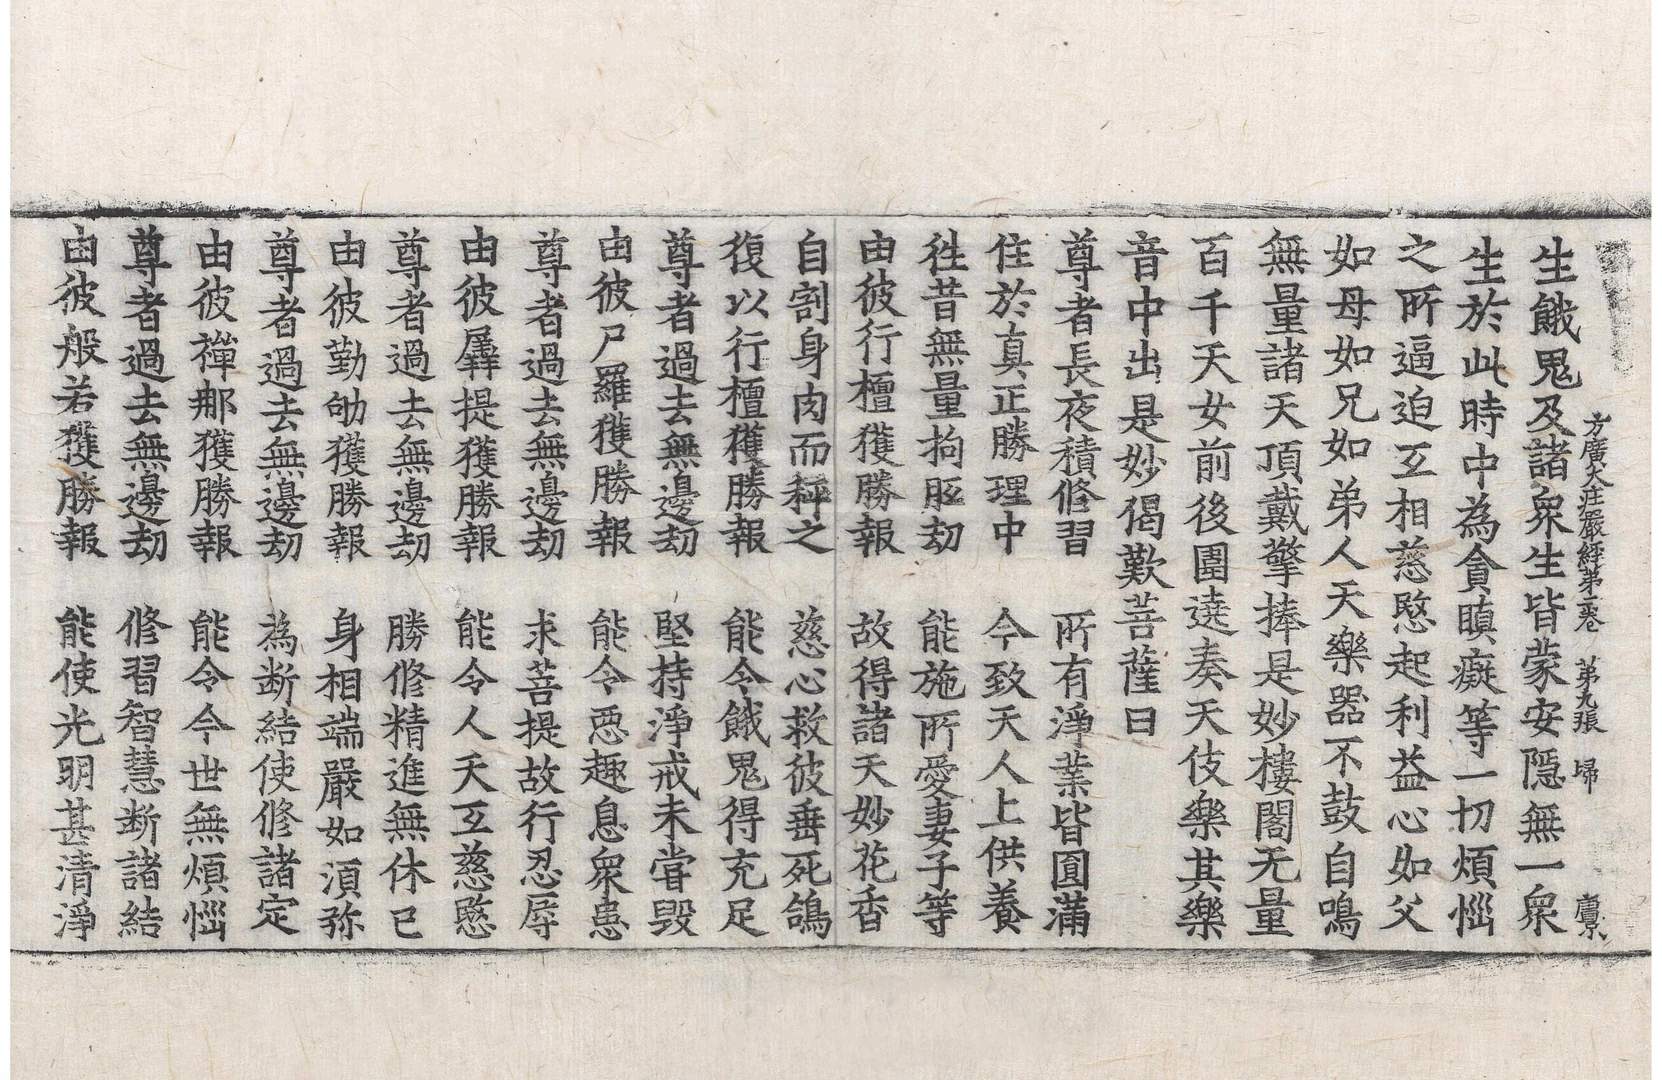 方廣大莊嚴經第二卷 第九張 歸
生餓鬼及諸衆生皆蒙安隱無一衆
生於此時中為貪瞋癡等一切煩惱
之所逼迫互相慈愍起利益心如父
如母如兄如弟人天樂器不鼓自鳴
無量諸天頂戴擎捧是妙樓閣无量
百千天女前後圍遶奏天伎樂其樂
音中出是妙偈歎菩薩曰
尊者長夜積修習 所有淨業皆圓滿
住於真正勝理中 今致天人上供養
往昔無量拘胝劫 能施所愛妻子等
由彼行檀獲勝報 故得諸天妙花香
自割身肉而秤之 慈心救彼垂死鴿
復以行檀獲勝報 能令餓鬼得充足
尊者過去無邊劫 堅持淨戒未甞毀
由彼尸羅獲勝報 能令惡趣息衆患
尊者過去無邊劫 求菩提故行忍辱
由彼羼提獲勝報 能令人天互慈愍
尊者過去無邊劫 勝修精進無休已
由彼勤劬獲勝報 身相端嚴如須弥
尊者過去無邊劫 為断結使修諸定
由彼禪那獲勝報 能令今世無煩惱
尊者過去無邊劫 修習智慧断諸結
由彼般若獲勝報 能使光明甚清淨